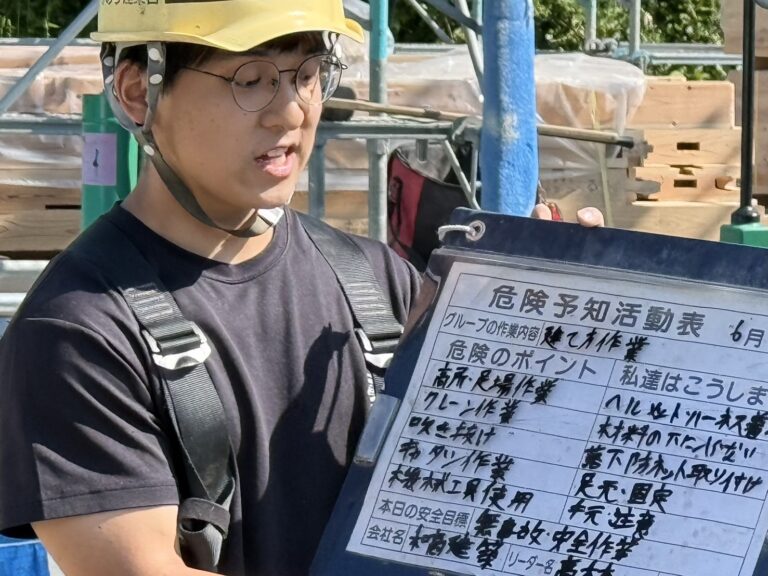 危険予知活動表 6月
グループの作業内容 建て方作業
危険のポイント 私達はこうしま
高所・足場作業 ヘルメット ハーネス着
クレーン作業 材料の下に入らない
吹き抜け 落下防ネット取り付け
作業 足元・固定
工具使用 手元注意
本日の安全目標 無事故・安全作業
会社名 建築 リーダー名